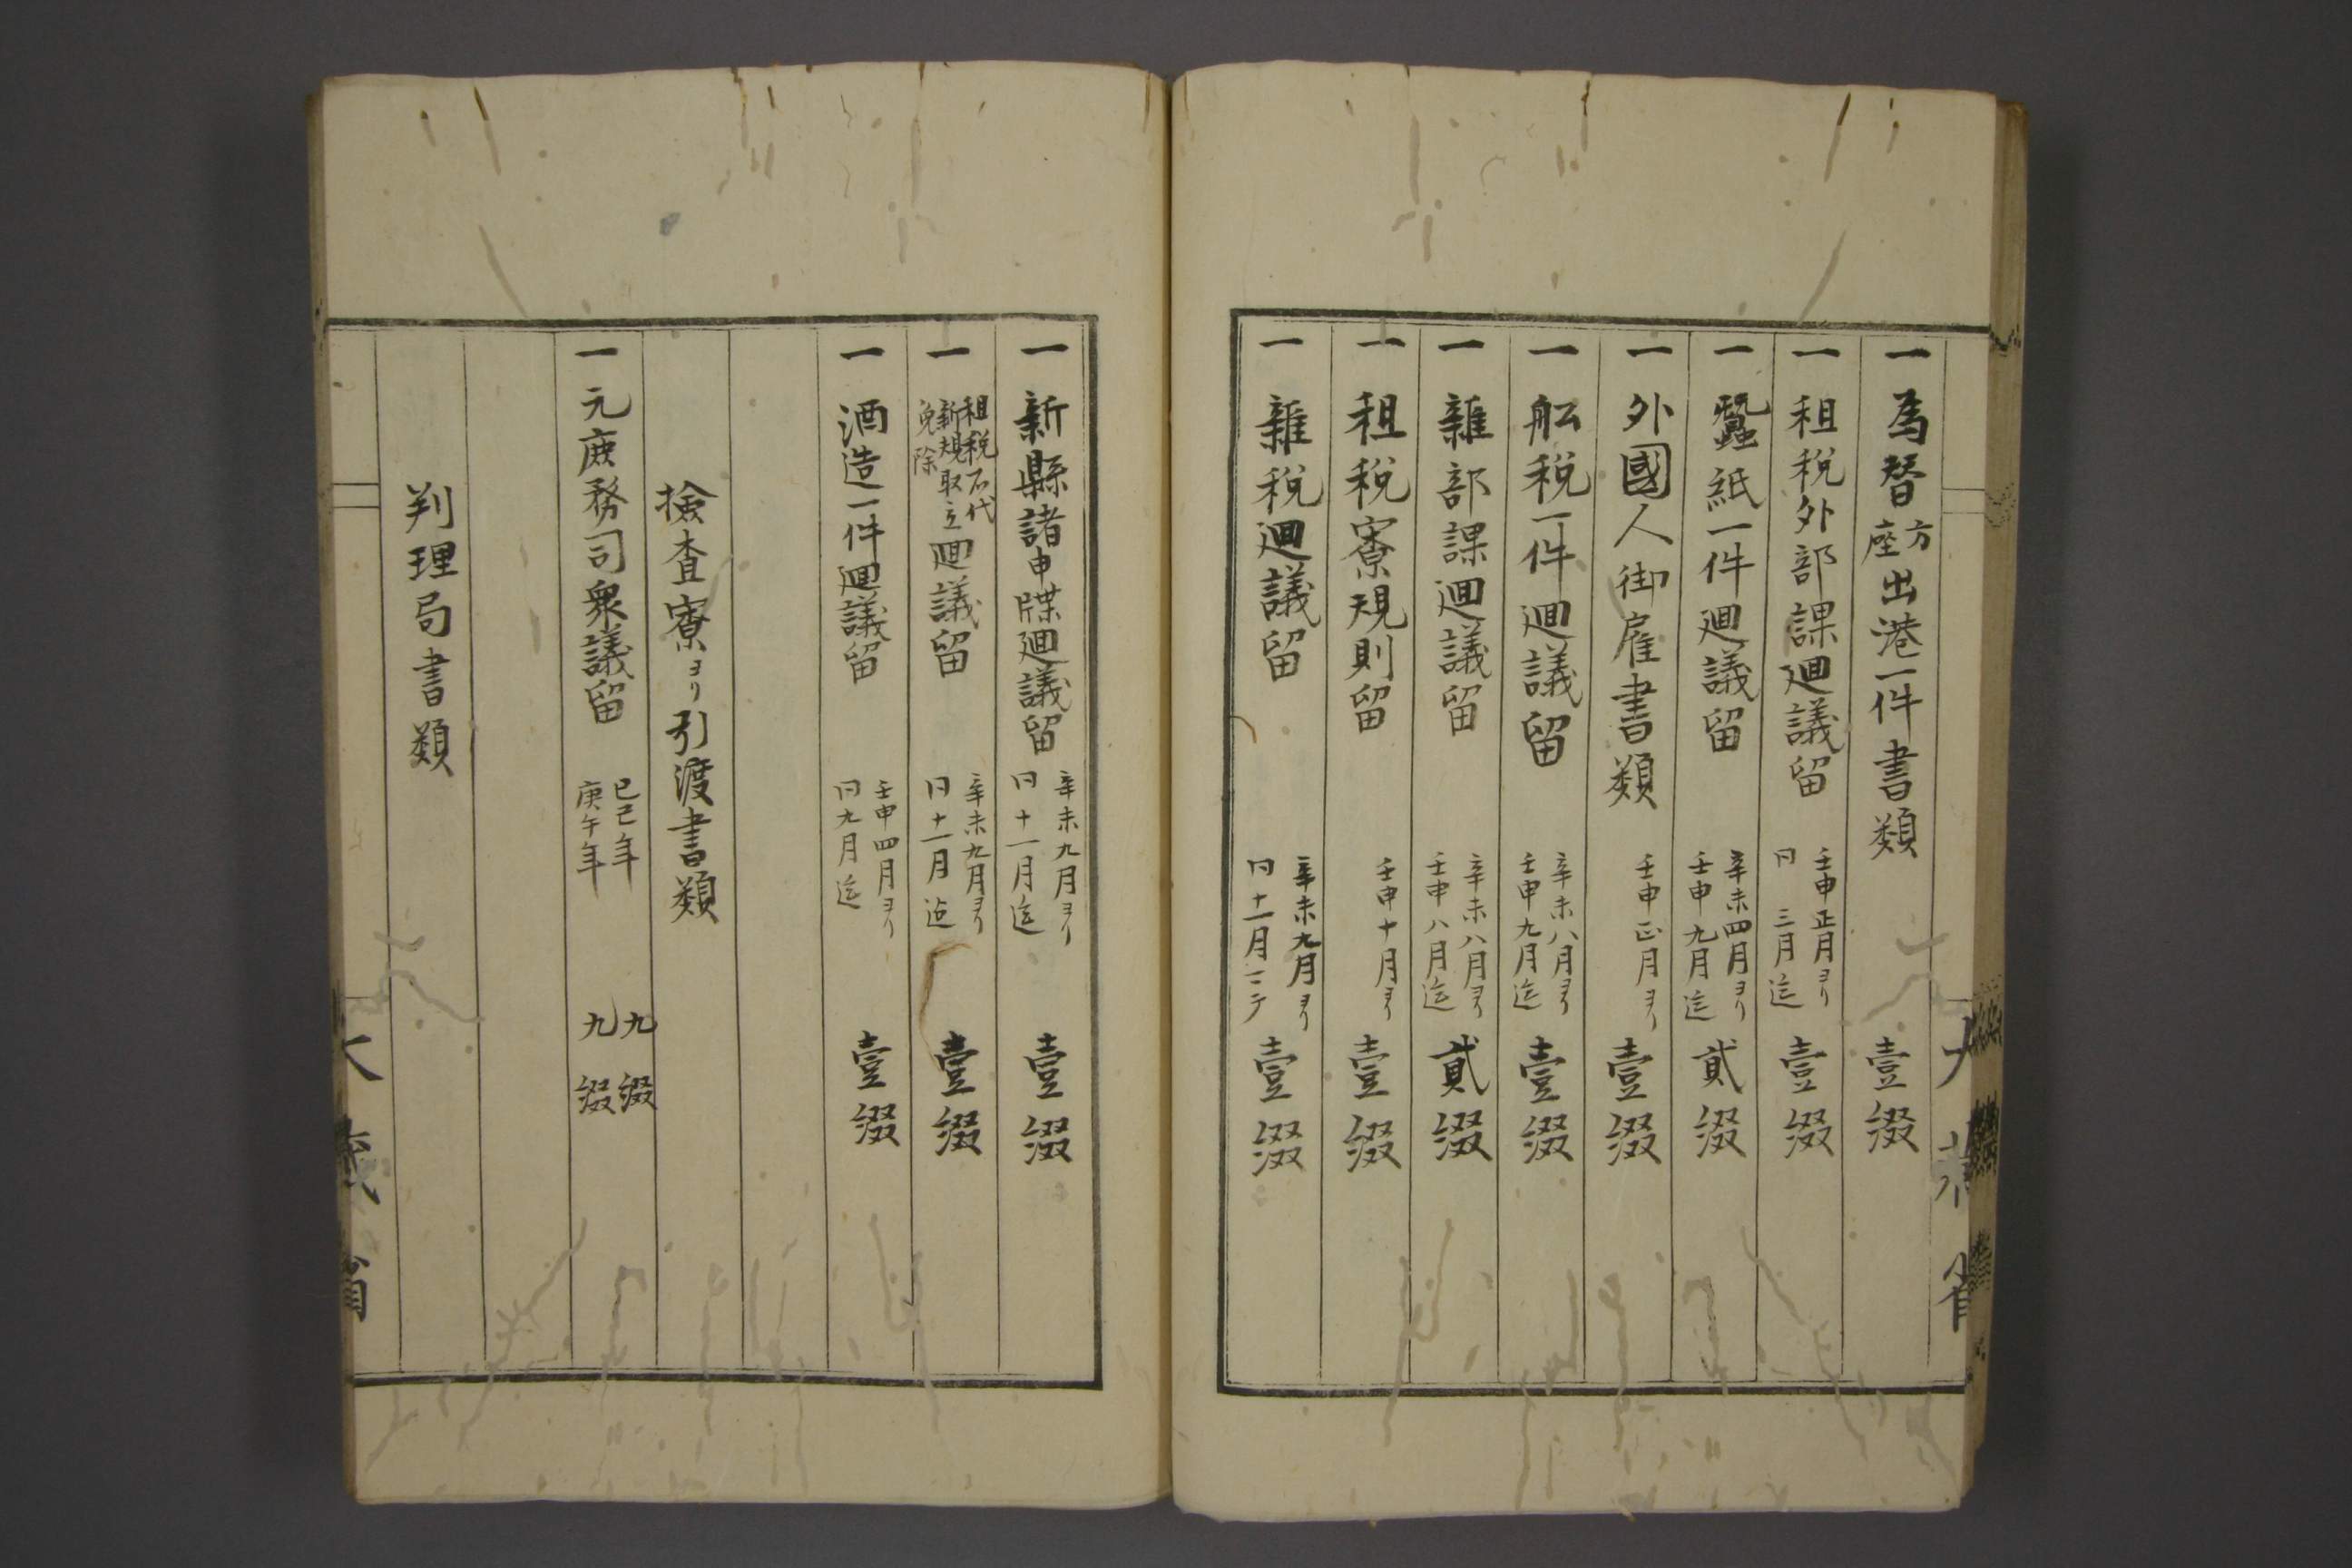 一 為替方座出港一件書類 壹綴
一 租税外部課廻議留 壬申正月ヨリ同三月迄 壹綴
一 蠶紙一件廻議留 辛未四月ヨリ壬申九月迄 貳綴
一 外國人御雇書類 壬申正月ヨリ 壹綴
一 舩税一件廻議留 辛未八月ヨリ壬申九月迄 壹綴
一 雜部課廻議留 辛未八月ヨリ壬申八月迄 貳綴
一 租税寮規則留 壬申十月ヨリ 壹綴
一 雜税廻議留 辛未九月ヨリ同十一月ニテ 壹綴
大藏省
一 新縣諸申牒廻議留 辛未九月ヨリ同十一月迄 壹綴
一 租税石代新規取立免除廻議留 辛未九月ヨリ同十一月迄 壹綴
一 酒造一件廻議留 壬申四月ヨリ同九月迄 壹綴
撿査寮ヨリ引渡書類
一 元庶務司衆議留 己巳年九綴 庚午年九綴
判理局書類
大藏省